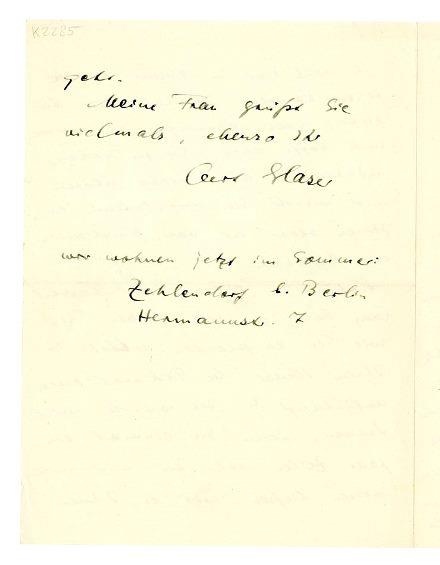 K2285
geht.
Meine Frau grüßt Sie
vielmals, ebenso Ihr
Curt Glaser
wir wohnen jetzt im Sommer:
Zehlendorf b. Berlin
Hermannstr. 7